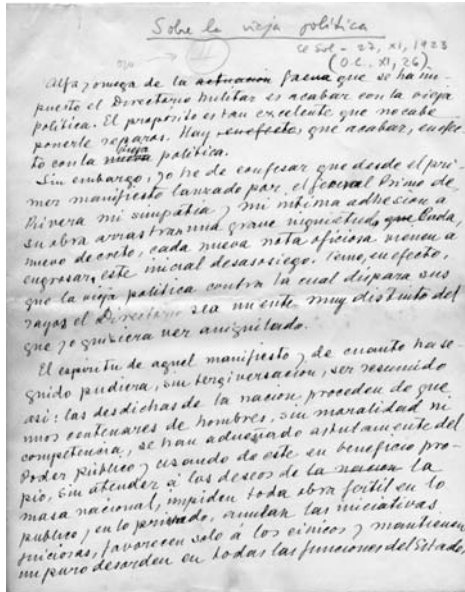 Sobre la vieja política
II
El Sol - 27, XI, 1923
(O.C. XI, 26)
Alfa y omega de la actuación faena que se ha im-
puesto el Directorio Militar es acabar con la vieja
política. El propósito es tan excelente que no cabe
ponerle reparos. Hay, en efecto, que acabar, en efec-
to con la nueva vieja política.
Sin embargo, yo he de confesar que desde el pri-
mer manifiesto lanzado por el general Primo de
Rivera mi simpatía y mi íntima adhesión a
su obra arrastran una grave inquietud, que Cada,
nuevo decreto, cada nueva nota oficiosa vienen a
engrosar, este inicial desasosiego. Temo, en efecto,
que la vieja política contra la cual dispara sus
rayos el Directorio sea un ente muy distinto del
que yo quisiera ver aniquilado.
El espíritu de aquel manifiesto y de cuanto ha se-
guido pudiera, sin tergiversación, ser resumido
así: las desdichas de la nación proceden de que
unos centenares de hombres, sin moralidad ni
competencia, se han adueñado astutamente del
Poder público y usando de este en beneficio pro-
pio, sin atender á los deseos de la nación la
masa nacional, impiden toda obra fértil en lo
público y en lo privado, anulan las iniciativas
juiciosas, favorecen solo á los cínicos y mantienen
un puro desorden en todas las funciones del Estado.